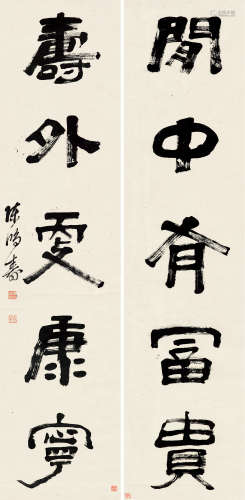 閒中有富貴
壽外更康寧
陳鴻壽